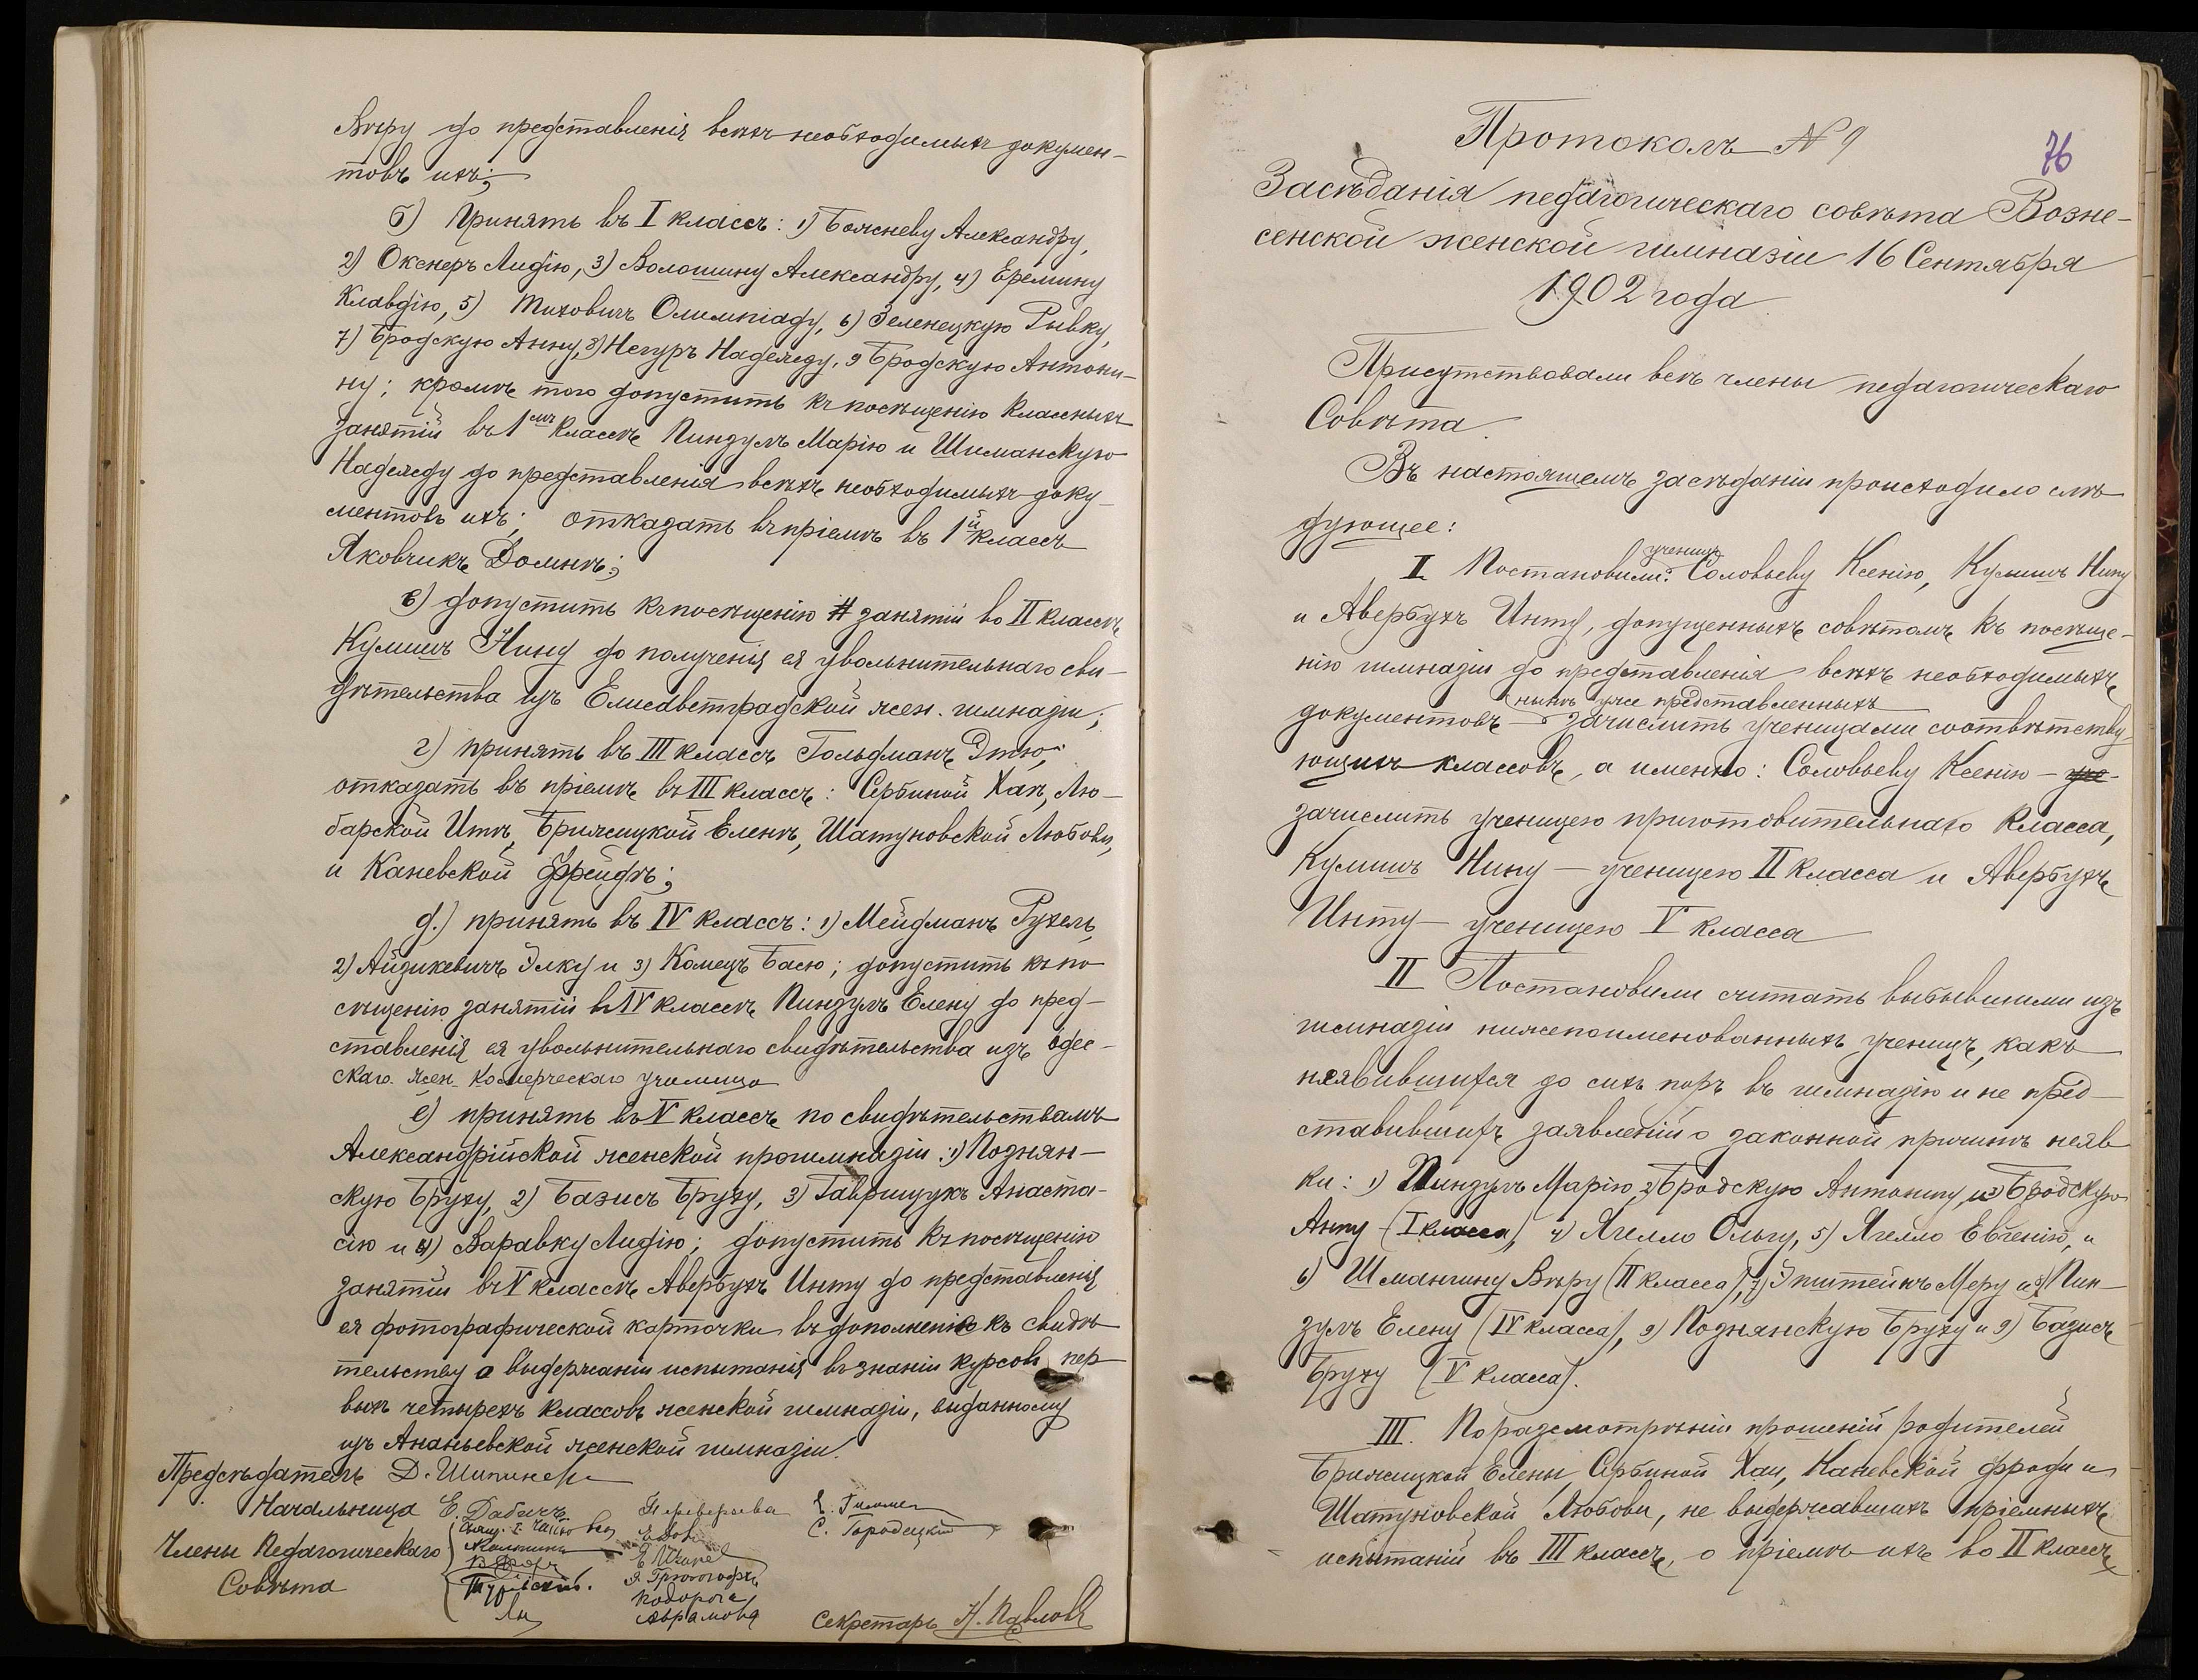 Вѣру до представленія всѣхъ необходимыхъ докумен-
товъ ихъ;
б) Принять въ I классъ: 1) Боясневу Александру,
2) Окснеръ Лидію, 3) Волошину Александру, 4) Еремину
Клавдію, 5) Тиховичъ Олимпіаду, 6) Зеленецкую Рывку,
7) Бродскую Анну, 8) Негуръ Надежду, 9 Бродскую Антони-
ну; кромѣ того допустить къ посѣщенію классныхъ
занятій въ 1 омъ классѣ Пиндулъ Марію и Шиманскую
Надежду до представленія всѣхъ необходимыхъ доку-
ментовъ ихъ; отказать въ пріемѣ въ 1й классъ
Яковчикъ Домнѣ;
в) допустить къ посѣщенію занятій во II классѣ
Кулишъ Нину до полученія ея увольнительнаго сви-
дѣтельства изъ Елисаветградской жен. гимназіи;
г) принять въ III классъ Гольдманъ Этю;
отказать въ пріемѣ въ III классъ: Сербиной Хаѣ, Лю-
барской Итѣ, Брижицкой Еленѣ, Шатуновской Любови,
и Каневской Фрейдѣ;
д.) принять въ IV классъ: 1) Мейдманъ Рухель,
2) Айзикевичъ Элку и 3) Комецъ Басю; допустить къ по
сѣщенію занятій въ IV классѣ Пиндулъ Елену до пред-
ставленія ея увольнительнаго свидѣтельства изъ Одес-
скаго жен. Коммерческаго училища
е) принять въ V классъ по свидѣтельствамъ
Александрійской женской прогимназіи: 1) Познян-
скую Бруху, 2) Базисъ Бруху, 3) Гаврищукъ Анаста-
сію и 4) Варавку Лидію; допустить къ посѣщенію
занятій въ V классѣ Авербухъ Инту до представленія
ея фотографической карточки въ дополненіе къ свидѣ
тельству о выдержаніи испытанія въ знаніи курсовъ пер
выхъ четырехъ классовъ женской гимназіи, выданному
изъ Ананьевской женской гимназіи.
Предсѣдатель Д. Шипинскі
Начальница Е. Дабичъ
Переверзева
С. Городецкій
Члены Педагогическаго
Совѣта
Подорога
Аврамова
Секретарь Н. Павловъ
76
Протоколъ № 9
Засѣданія педагогическаго совѣта Возне-
сенской женской гимназіи 16 Сентября
1902 года
Присутствовали всѣ члены педагогическаго
Совѣта.
Въ настоящемъ засѣданіи происходило слѣ
дующее:
I Постановили: ученицъ Соловьеву Ксенію, Кулишъ Нину
и Авербухъ Инту, допущенныхъ совѣтомъ къ посѣще-
нію гимназіи до представленія всѣхъ необходимыхъ
нынѣ уже представленныхъ
документовъ зачислить ученицами соотвѣтству-
ющихъ классовъ, а именно: Соловьеву Ксенію –
зачислить ученицею приготовительнаго класса,
Кулишъ Нину – ученицею II класса и Авербухъ
Инту – ученицею V класса
II Постановили считать выбывшими изъ
гимназіи нижепоименованныхъ ученицъ, какъ
неявившихся до сихъ поръ въ гимназію и не пред-
ставившихъ заявленій о законной причинѣ неяв
ки: 1) Пиндулъ Марію, 2) Бродскую Антонину, и 3) Бродскую
Анну (I класса), 4) Ягелло Ольгу, 5) Ягелло Евгенію, и
6) Шмангину Вѣру (II класса), 7) Эпштейнъ Меру и 8) Пин-
дулъ Елену (IV класса), 9) Познянскую Бруху и 9) Базисъ
Бруху (V класса).
III. По разсмотрѣніи прошеній родителей
Брижицкой Елены, Сербиной Хаи, Каневской Фроди и
Шатуновской Любови, не выдержавшихъ пріемныхъ
испытаній въ III классъ, о пріемѣ ихъ во II классъ